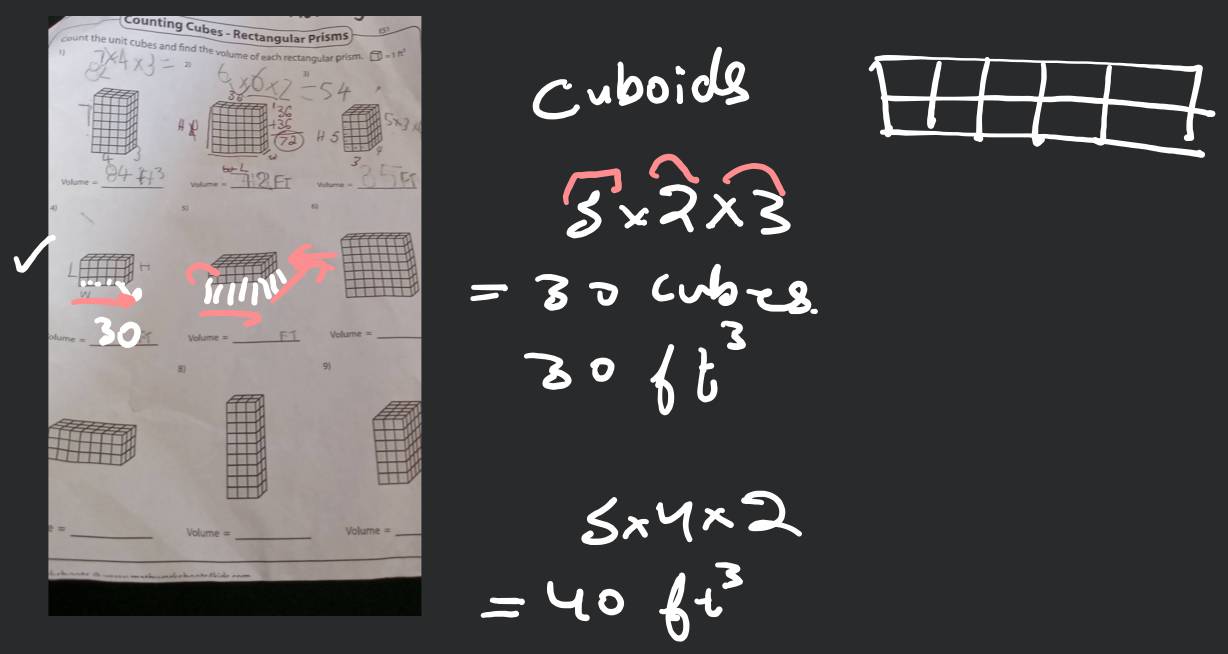 Counting Cubes - Rectangular Prisms
ES1
Count the unit cubes and find the volume of each rectangular prism. = 1 ft³
1)
7×4×3=
2)
6×6×2
3)
=54
36
+36
72
H
H 5
7
4
3
3
4
L
Volume = 84 ft³
Volume = FT
Volume = FT
4)
5)
6)
L
H
W
30
Volume =
Volume = FT
Volume =
8)
9)
Volume =
Volume =
Cuboids
5×2×3
= 30 cubes.
30 ft³
5×4×2
= 40 ft³